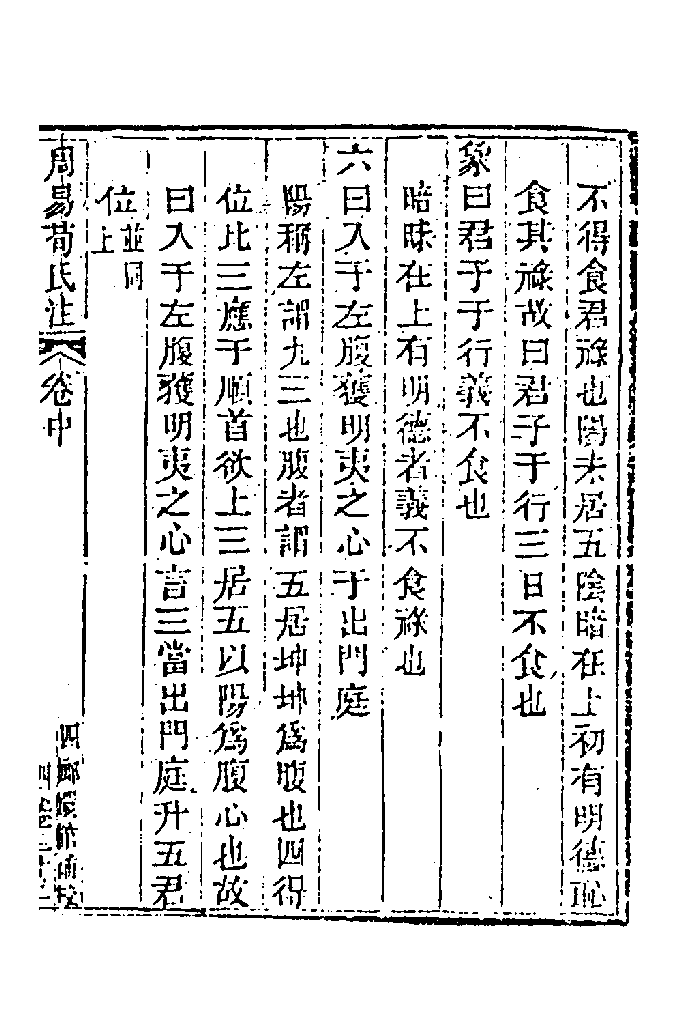 不得食君祿也陽未居五陰暗在上初有明德恥
食其祿故曰君子于行三日不食也
象曰君子于行義不食也
暗昧在上有明德者義不食祿也
六曰入于左腹獲明夷之心于出門庭
陽稱左謂九三也腹者謂五居坤坤為腹也四得
位比三應于順首欲上三居五以陽為腹心也故
曰入于左腹獲明夷之心言三當出門庭升五君
位並同上
周易荀氏注 卷中